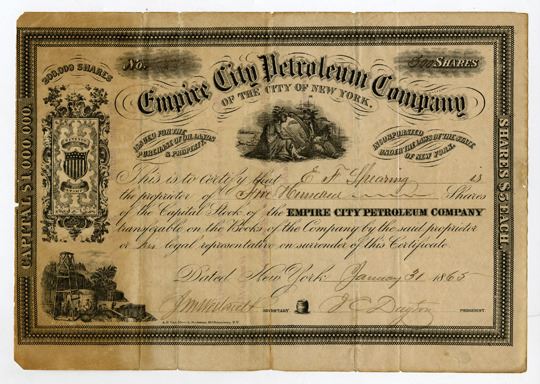 No.
500 SHARES
200,000 SHARES
Empire City Petroleum Company
OF THE CITY OF NEW YORK.
ISSUED FOR THE
PURCHASE OF OIL LANDS
& PROPERTY.
INCORPORATED
UNDER THE LAWS OF THE STATE
OF NEW YORK.
CAPITAL $1,000,000
SHARES $5 EACH
This is to certify that E F Spearing is
the proprietor of Five Hundred Shares
of the Capital Stock of the EMPIRE CITY PETROLEUM COMPANY
transferable on the Books of the Company by the said proprietor
or his legal representative on surrender of this Certificate
Dated New York January 31 1865
SECRETARY
J C Dayton PRESIDENT